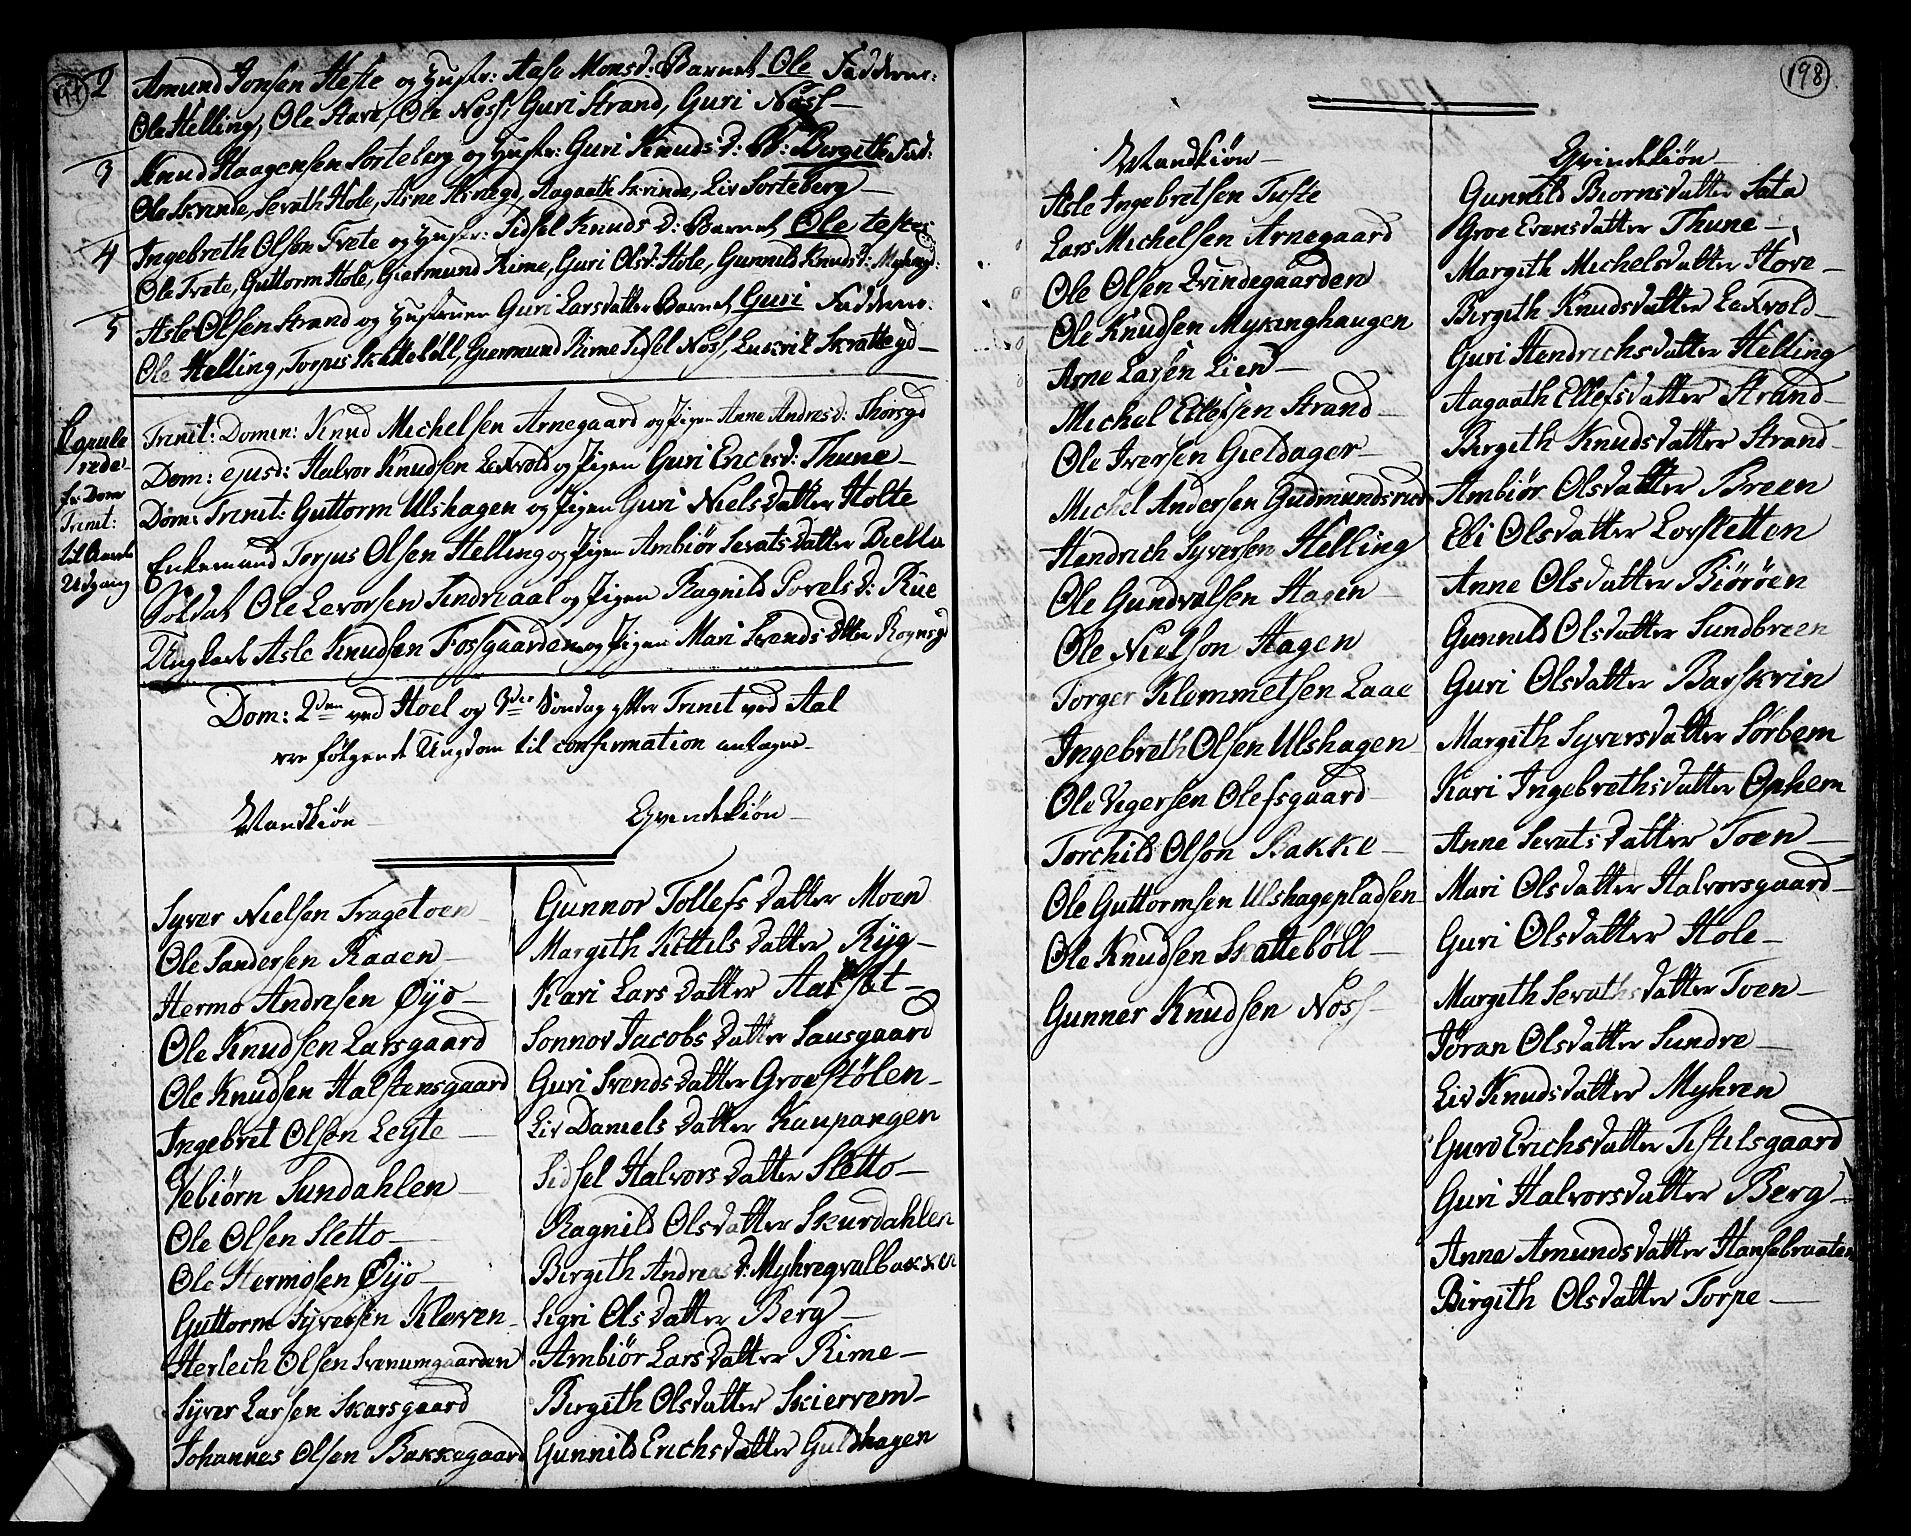 197
2 Amund Jonsen Heste og Hustr: Aase Monsd: Barnet Ole Faddere:
Ole Helling, Ole Stave, Ole Noss, Guri Strand, Guri Noss
3 Knud Haagensen Sorteberg og Hustr: Guri Knuds d: B: Bergith Fad:
Ole Skrinde, Sevath Hole, Arne Arnegd, Aagaath Skrinde, Liv Sorteberg
4 Ingebreth Olsen Trete og Hustr: Sidsel Knuds D: Barnet Ole testes
Ole Trete, Guttorm Hole, Giermund Rime, Guri Olsd: Hole, Gunnild Knudsd:
5 Asle Olsen Strand og Hustruen Guri Larsdatter Barnet Guri Faddere:
Ole Helling, Torpus Skattebøll, Giermund Rime Sidsel Noss,
Copule
rede
fr: Dom
Trinit:
til Aarets
Udgang
Trinit: Domin: Knud Michelsen Arnegaard og Pigen Anne Andresd: Thorsgd
Dom: ejusd: Halvor Knudsen Lexvold og Pigen Guri Erichsd: Thune
Dom: Trinit: Guttorm Ulshagen og Pigen Guri Nielsdatter Holte
Enkemand Torjus Olsen Helling og Pigen Ambiør Sevatsdatter Biella
Soldat Ole Levorsen Sindreaal og Pigen Ragnild Povelsd: Rue
Ungkarl Asle Knudsen Fossgaarden og Pigen Mari Svends Dtter Roynsgd
Dom: 2den ved Hoel og 3die Søndag efter Trinit ved Aal
ere følgende Ungdom til confirmation antagne
Mandkiøn
Qvindekiøn
Syver Nielsen Tragetoen
Ole Sandersen Raaen
Hermo Andresen Øyo
Ole Knudsen Larsgaard
Ole Knudsen Halstensgaard
Ingebret Olsen Leyte
Vebiørn Sundahlen
Ole Olsen Sletto
Ole Hermosen Øyo
Guttorm Syversen Kleven
Herlech Olsen Svenumgaarden
Syver Larsen Skarsgaard
Johannes Olsen Bakkegaard
Gunnor Tollefs datter Moen
Margith Kittels datter Ryg
Kari Lars datter Aalset
Sonnov Jacobs datter Sausgaard
Guri Svends datter Groestølen
Liv Daniels datter Kaupangen
Sidsel Halvors datter Sletto
Ragnild Olsdatter Skurdahlen
Birgith Andreas d: Myhregvalbakken
Sigri Olsdatter Berg
Ambiør Larsdatter Rime
Birgith Olsdatter Skiervem
Gunnild Erichsdatter Guldhagen
198
Mandkiøn
Asle Ingebretsen Tufte
Lars Michelsen Arnegaard
Ole Olsen Qvindegaarden
Ole Knudsen Mykinghaugen
Arne Larsen Lien
Michel Ellefsen Strand
Ole Iversen Gieldager
Michel Andersen Gudmundsrud
Hendrich Syversen Helling
Ole Gundvalsen Hagen
Ole Nielson Hagen
Torger Klemmetsen Laae
Ingebreth Olsen Ulshagen
Ole Vegersen Olefsgaard
Torchild Olson Bakke
Ole Guttormsen Ulshagepladsen
Ole Knudsen Skattebøll
Gunner Knudsen Noss
Qvindekiøn
Gunnild Biornsdatter Sata
Groe Evensdatter Thune
Margith Michelsdatter Hove
Birgith Knudsdatter Lexvold
Guri Hendrichsdatter Helling
Aagaath Ellefsdatter Strand
Birgith Knudsdatter Strand
Ambiør Olsdatter Breen
Eli Olsdatter Lovsletten
Anne Olsdatter Biørøen
Gunnild Olsdatter Sundbreen
Guri Olsdatter Barskrin
Margith Syversdatter Sørbem
Kari Ingebrethsdatter Ophem
Anne Sevatsdatter Toen
Mari Olsdatter Halvorsgaard
Guri Olsdatter Hole
Margith Sevathsdatter Toen
Jøran Olsdatter Sundre
Liv Knudsdatter Myhren
Guro Erichsdatter Tistelsgaard
Guri Halvorsdatter Berg
Anne Amundsdatter Hansebraaten
Birgith Olsdatter Torpe